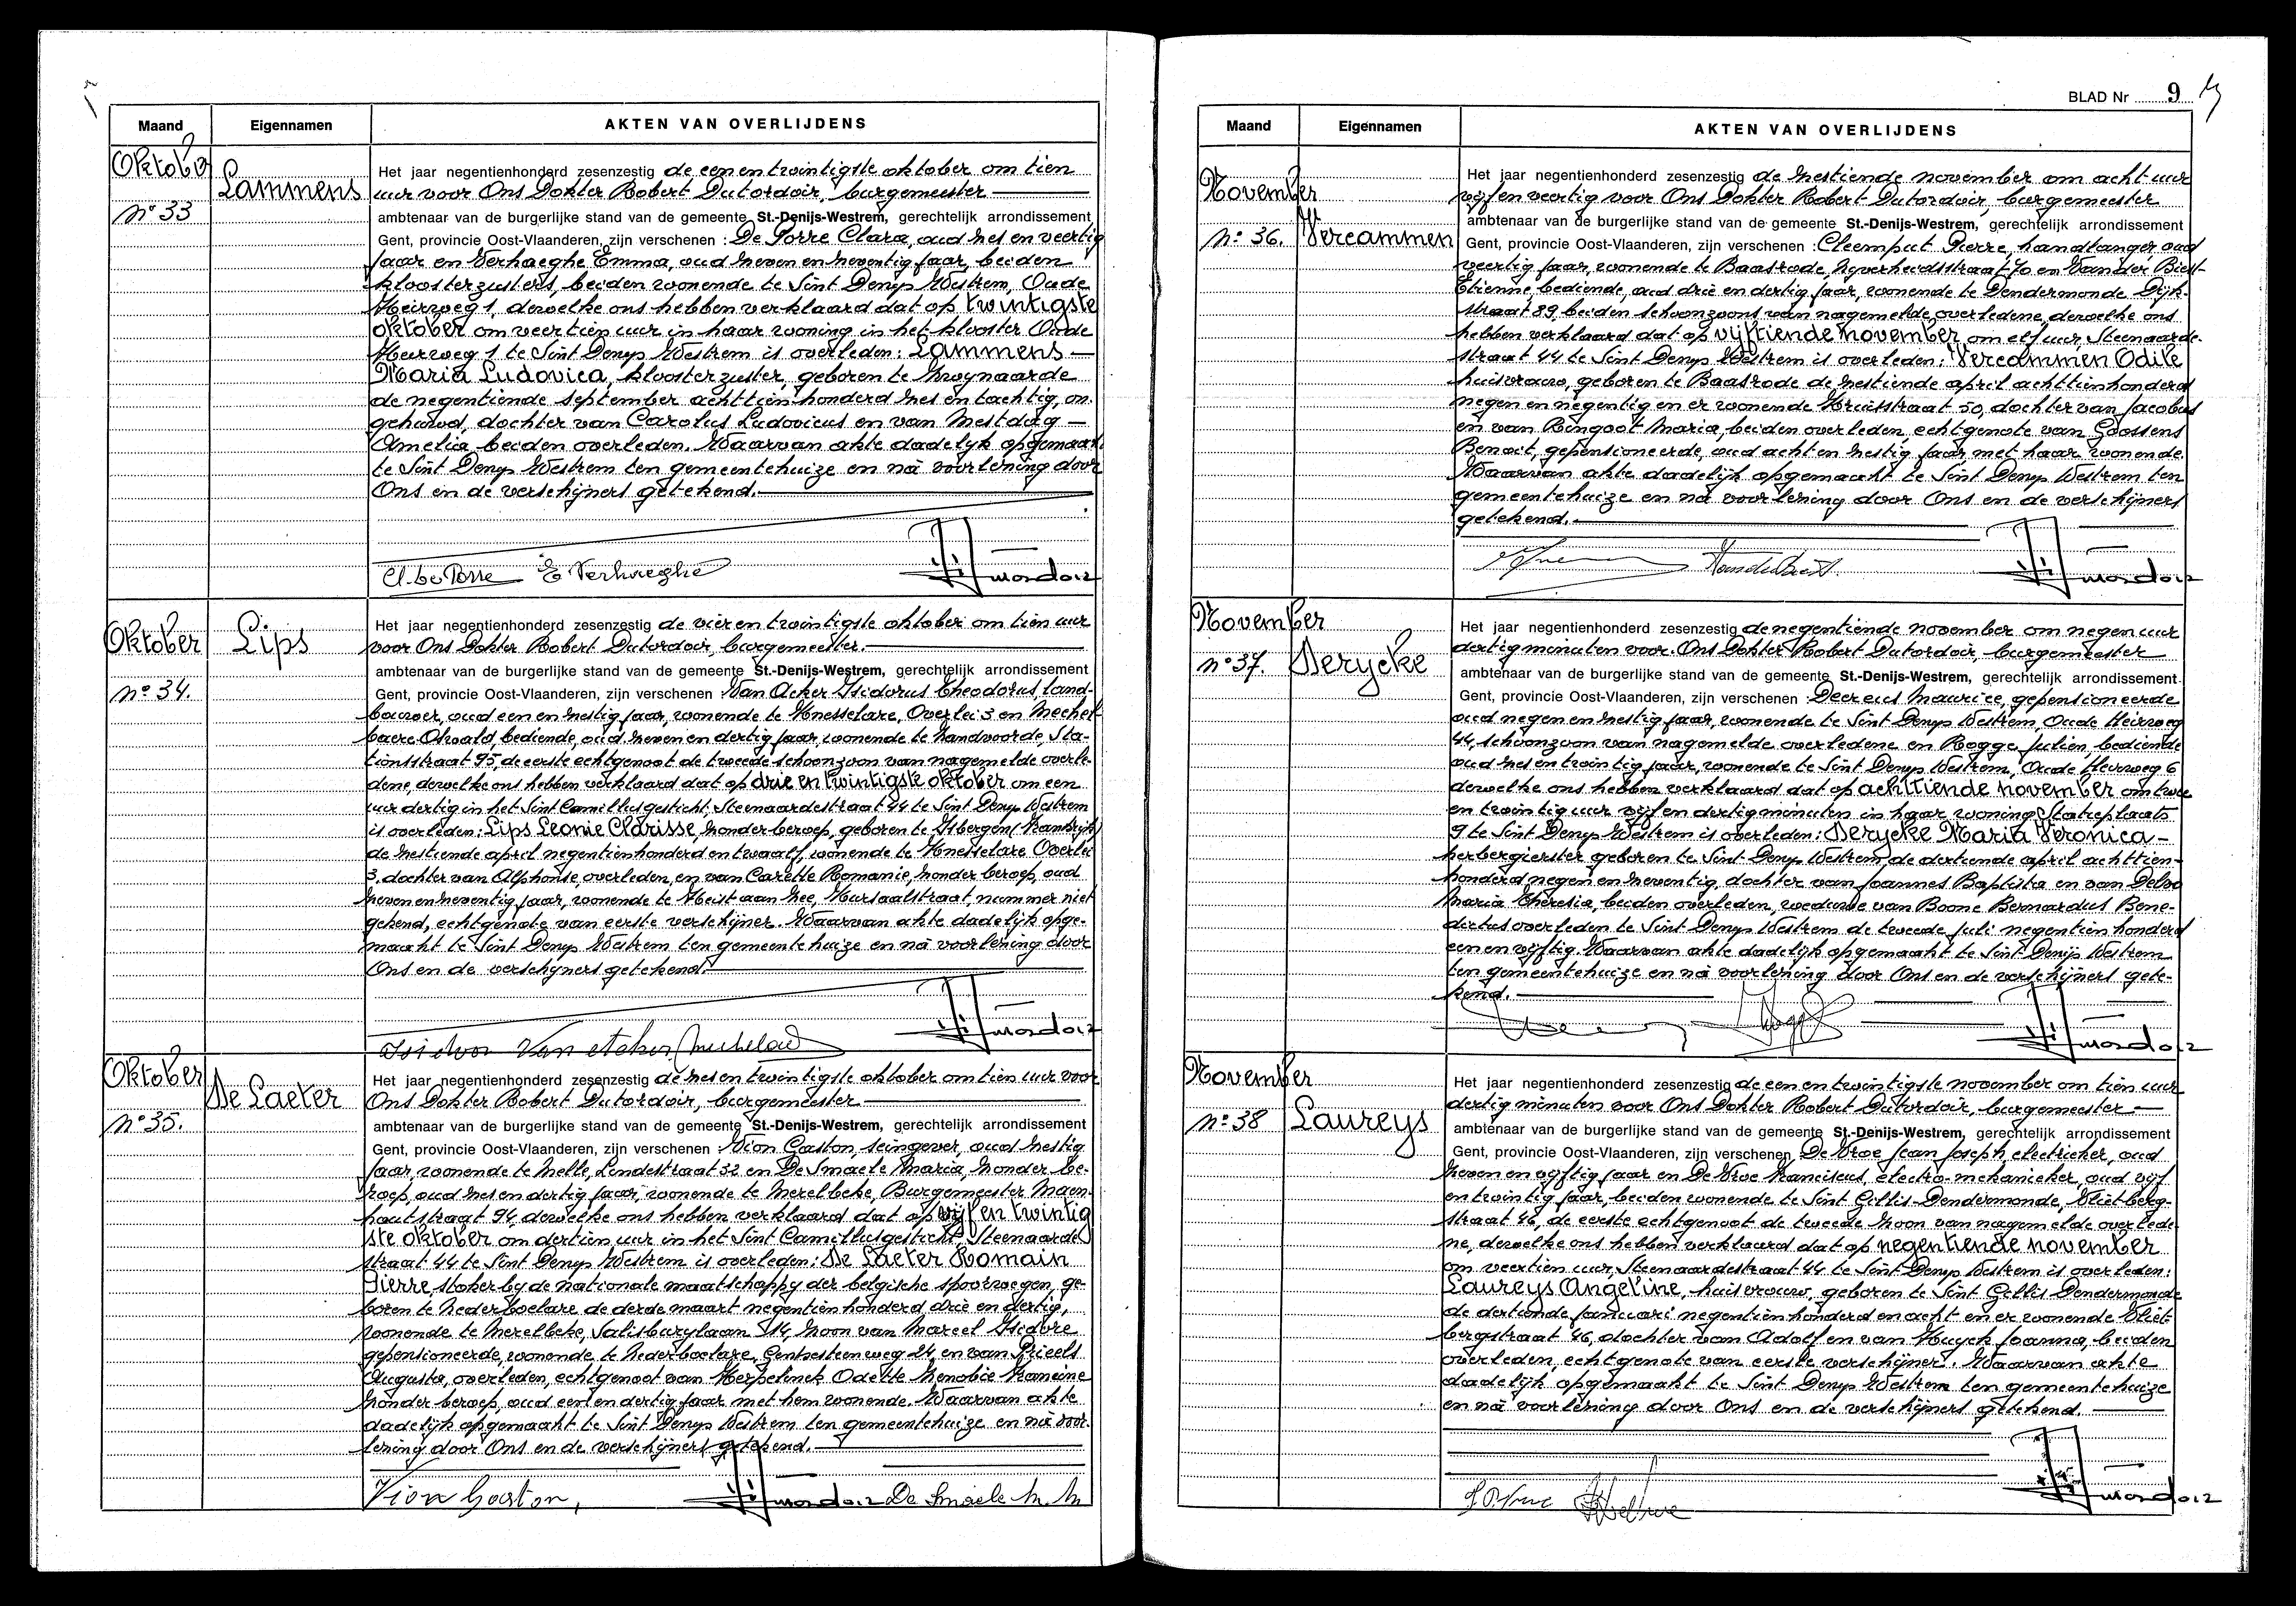 Maand
Eigennamen
AKTEN VAN OVERLIJDENS
Oktober
Lammens
n° 33
Het jaar negentienhonderd zesenzestig de een en twintigste oktober om tien
uur voor Ons Dokter Robert Dutordoir, burgemeester
ambtenaar van de burgerlijke stand van de gemeente St.-Denijs-Westrem, gerechtelijk arrondissement
Gent, provincie Oost-Vlaanderen, zijn verschenen : De Porre Clara, oud zes en veertig
jaar en Verhaeghe Emma, oud zeven en zeventig jaar, beiden
kloosterzusters, beiden wonende te Sint Denys Westrem, Oude
Heirweg 1, dewelke ons hebben verklaard dat op twintigste
oktober om veertien uur in haar woning in het klooster Oude
Heirweg 1 te Sint Denys Westrem is overleden: Lammens
Maria Ludovica, kloosterzuster, geboren te Zwynaarde
de negentiende september achttienhonderd zes en tachtig, on-
gehuwd, dochter van Carolus Ludovicus en van Mestdag
Amelia beiden overleden. Waarvan akte dadelyk opgemaakt
te Sint Denys Westrem ten gemeentehuize en na voorlezing door
Ons en de verschijners getekend.
Cl. De Porre E Verhaeghe
Oktober
Lips
n° 34.
Het jaar negentienhonderd zesenzestig de vier en twintigste oktober om tien uur
voor Ons Dokter Robert Dutordoir, burgemeester.
ambtenaar van de burgerlijke stand van de gemeente St.-Denijs-Westrem, gerechtelijk arrondissement
Gent, provincie Oost-Vlaanderen, zijn verschenen : Van Acker Isidorus Theodorus, land-
bouwer, oud een en zestig jaar, wonende te Knesselare, Overlei 3 en Mechel-
baere Oswald bediende, oud zeven en dertig jaar, wonende te Zandvoorde, Sta-
tionsstraat 95, de eerste echtgenoot de tweede schoonzoon van nagemelde overle-
dene, dewelke ons hebben verklaard dat op drie en twintigste oktober om een
uur dertig in het Sint Camillusgesticht, Steenaardestraat 44 te Sint Denys Westrem
is overleden: Lips Leonie Clarisse, zonder beroep, geboren te Isbergen (Frankrijk)
de zestiende april negentienhonderd en twaalf, wonende te Knesselare Overlei
3, dochter van Alphonse, overleden, en van Carette Romanie, zonder beroep, oud
zeven en zeventig jaar, wonende te Heist aan Zee, Kursaalstraat, nummer niet
gekend, echtgenote van eerste verschijner. Waarvan akte dadelijk opge-
maakt te Sint Denys Westrem ten gemeentehuize en na voorlezing door
Ons en de verschijners getekend.
Isidoor Van Acker
Oktober
De Laeter
n° 35.
Het jaar negentienhonderd zesenzestig de zes en twintigste oktober om tien uur voor
Ons Dokter Robert Dutordoir, burgemeester
ambtenaar van de burgerlijke stand van de gemeente St.-Denijs-Westrem, gerechtelijk arrondissement
Gent, provincie Oost-Vlaanderen, zijn verschenen : Vion Gaston, seingever, oud zestig
jaar, wonende te Melle, Lindestraat 32 en De Smaele Maria, zonder be-
roep, oud zes en dertig jaar, wonende te Merelbeke, Burgemeester Maen-
houtstraat 94, dewelke ons hebben verklaard dat op vijf en twintig
ste oktober om dertien uur in het Sint Camillusgesticht, Steenaarde
straat 44 te Sint Denys Westrem is overleden: De Laeter Romain
Pierre, stoker bij de nationale maatschappy der belgische spoorwegen, ge-
boren te Nederboelare de derde maart negentienhonderd drie en dertig,
wonende te Merelbeke, Salisburylaan 114, zoon van Marcel Isidore
gepensioneerde, wonende te Nederboelare, Gentsesteenweg 24, en van Prieels
Augusta, overleden, echtgenoot van Herpelinck Odette Zenobie Francine
zonder beroep, oud een en dertig jaar met hem wonende. Waarvan akte
dadelijk opgemaakt te Sint Denys Westrem ten gemeentehuize en na voor-
lezing door Ons en de verschijners getekend.
Vion Gaston, De Smaele M. M
BLAD Nr 9
Maand
Eigennamen
AKTEN VAN OVERLIJDENS
November
n° 36.
Vercammen
Het jaar negentienhonderd zesenzestig de zestiende november om acht uur
vijf en veertig voor Ons Dokter Robert Dutordoir, burgemeester
ambtenaar van de burgerlijke stand van de gemeente St.-Denijs-Westrem, gerechtelijk arrondissement
Gent, provincie Oost-Vlaanderen, zijn verschenen : Cleemput Pierre, handlanger, oud
veertig jaar, wonende te Baasrode, Nyverheidsstraat 70 en Van der Biest-
Etienne, bediende, oud drie en dertig jaar, wonende te Dendermonde Dijk-
straat 89, beiden schoonzoons van nagemelde overledene, dewelke ons
hebben verklaard dat op vijftiende november om elf uur, Steenaarde-
straat 44 te Sint Denys Westrem is overleden: Vercammen Odile
huisvrouw, geboren te Baasrode de zestiende april achttienhonderd
negen en negentig en er wonende Kruisstraat 50, dochter van Jacobus
en van Ringoot Maria, beiden overleden, echtgenote van Goossens
Benoit, gepensioneerde, oud acht en zestig jaar, met haar wonende.
Waarvan akte dadelijk opgemaakt te Sint Denys Westrem ten
gemeentehuize en na voorlezing door Ons en de verschijners
getekend.
November
n° 37.
Derycke
Het jaar negentienhonderd zesenzestig de negentiende november om negen uur
dertig minuten voor Ons Dokter Robert Dutordoir, burgemeester
ambtenaar van de burgerlijke stand van de gemeente St.-Denijs-Westrem, gerechtelijk arrondissement
Gent, provincie Oost-Vlaanderen, zijn verschenen : Deereus Maurice, gepensioneerde
oud negen en zestig jaar, wonende te Sint Denys Westrem, Oude Heirweg
44, schoonzoon van nagemelde overledene en Rogge Julien, bediende
oud zes en twintig jaar, wonende te Sint Denys Westrem, Oude Heirweg 6
dewelke ons hebben verklaard dat op achttiende november om twee
en twintig uur vijf en dertig minuten in haar woning Statieplaats
9 te Sint Denys Westrem is overleden: Derycke Maria Veronica
herbergierster geboren te Sint Denys Westrem, de dertiende april achttien-
honderd negen en zeventig, dochter van Joannes Baptista en van
Maria Theresia, beiden overleden, weduwe van Boone Bernardus Bene-
dictus overleden te Sint Denys Westrem de tweede juli negentienhonderd
een en vijftig. Waarvan akte dadelijk opgemaakt te Sint Denijs Westrem
ten gemeentehuize en na voorlezing door Ons en de verschijners gete-
kend.
November
n° 38
Laureys
Het jaar negentienhonderd zesenzestig de een en twintigste november om tien uur
dertig minuten voor Ons Dokter Robert Dutordoir, burgemeester
ambtenaar van de burgerlijke stand van de gemeente St.-Denijs-Westrem, gerechtelijk arrondissement
Gent, provincie Oost-Vlaanderen, zijn verschenen : De Vroe Jean Joseph, electrieker, oud
zeven en vijftig jaar en De Vroe Franciscus, electro-mekanieker, oud vijf
en twintig jaar, beiden wonende te Sint Gillis-Dendermonde, Vlietberg-
straat 46, de eerste echtgenoot de tweede zoon van nagemelde overlede
ne, dewelke ons hebben verklaard dat op negentiende november
om veertien uur, Steenaardestraat 44 te Sint Denys Westrem is overleden:
Laureys Angeline, huisvrouw, geboren te Sint Gillis Dendermonde
de dertiende januari negentienhonderd en acht en er wonende Vliet-
bergstraat 46, dochter van Adolf en van Huyck Joanna, beiden
overleden, echtgenote van eerste verschijner. Waarvan akte
dadelijk opgemaakt te Sint Denys Westrem ten gemeentehuize
en na voorlezing door Ons en de verschijners getekend.